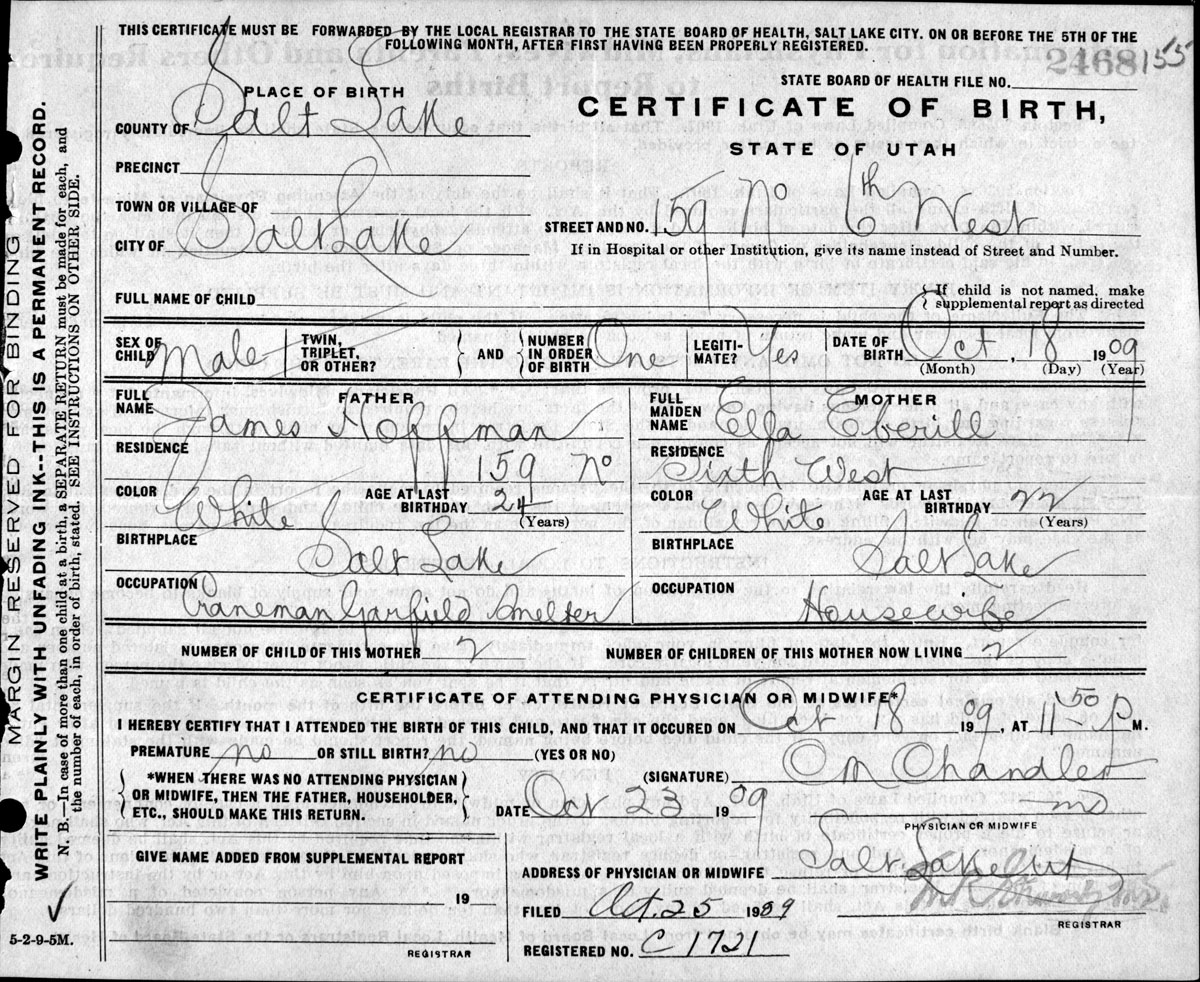 THIS CERTIFICATE MUST BE FORWARDED BY THE LOCAL REGISTRAR TO THE STATE BOARD OF HEALTH, SALT LAKE CITY. ON OR BEFORE THE 5TH OF THE
FOLLOWING MONTH, AFTER FIRST HAVING BEEN PROPERLY REGISTERED.
2468 155
STATE BOARD OF HEALTH FILE NO.
PLACE OF BIRTH
CERTIFICATE OF BIRTH,
STATE OF UTAH
COUNTY OF Salt Lake
PRECINCT
TOWN OR VILLAGE OF
CITY OF Salt Lake
STREET AND NO. 159 No 6th West
If in Hospital or other Institution, give its name instead of Street and Number.
FULL NAME OF CHILD
If child is not named, make
supplemental report as directed
SEX OF CHILD Male
TWIN, TRIPLET, OR OTHER?
AND
NUMBER IN ORDER OF BIRTH One
LEGITI-MATE? Yes
DATE OF BIRTH Oct, 18 1909
(Month) (Day) (Year)
FATHER
FULL NAME James Hoffman
MOTHER
FULL MAIDEN NAME Ella Everill
RESIDENCE 159 No
RESIDENCE Sixth West
COLOR White AGE AT LAST BIRTHDAY 24 (Years)
COLOR White AGE AT LAST BIRTHDAY 22 (Years)
BIRTHPLACE Salt Lake
BIRTHPLACE Salt Lake
OCCUPATION Craneman Garfield Smelter
OCCUPATION Housewife
NUMBER OF CHILD OF THIS MOTHER 2 NUMBER OF CHILDREN OF THIS MOTHER NOW LIVING 2
CERTIFICATE OF ATTENDING PHYSICIAN OR MIDWIFE*
I HEREBY CERTIFY THAT I ATTENDED THE BIRTH OF THIS CHILD, AND THAT IT OCCURED ON Oct 18 1909, AT 1 50 P M.
PREMATURE no OR STILL BIRTH? no (YES OR NO)
*WHEN THERE WAS NO ATTENDING PHYSICIAN
OR MIDWIFE, THEN THE FATHER, HOUSEHOLDER,
ETC., SHOULD MAKE THIS RETURN.
(SIGNATURE) OM Chandler
DATE Oct 23 1909
MD
PHYSICIAN OR MIDWIFE
GIVE NAME ADDED FROM SUPPLEMENTAL REPORT
19
REGISTRAR
ADDRESS OF PHYSICIAN OR MIDWIFE Salt Lake
FILED Oct. 25 1909
REGISTRAR
REGISTERED NO. C 1721
5-2-9-5M.
MARGIN RESERVED FOR BINDING
WRITE PLAINLY WITH UNFADING INK--THIS IS A PERMANENT RECORD.
N. B.—In case of more than one child at a birth, a SEPARATE RETURN must be made for each, and
the number of each, in order of birth, stated. SEE INSTRUCTIONS ON OTHER SIDE.